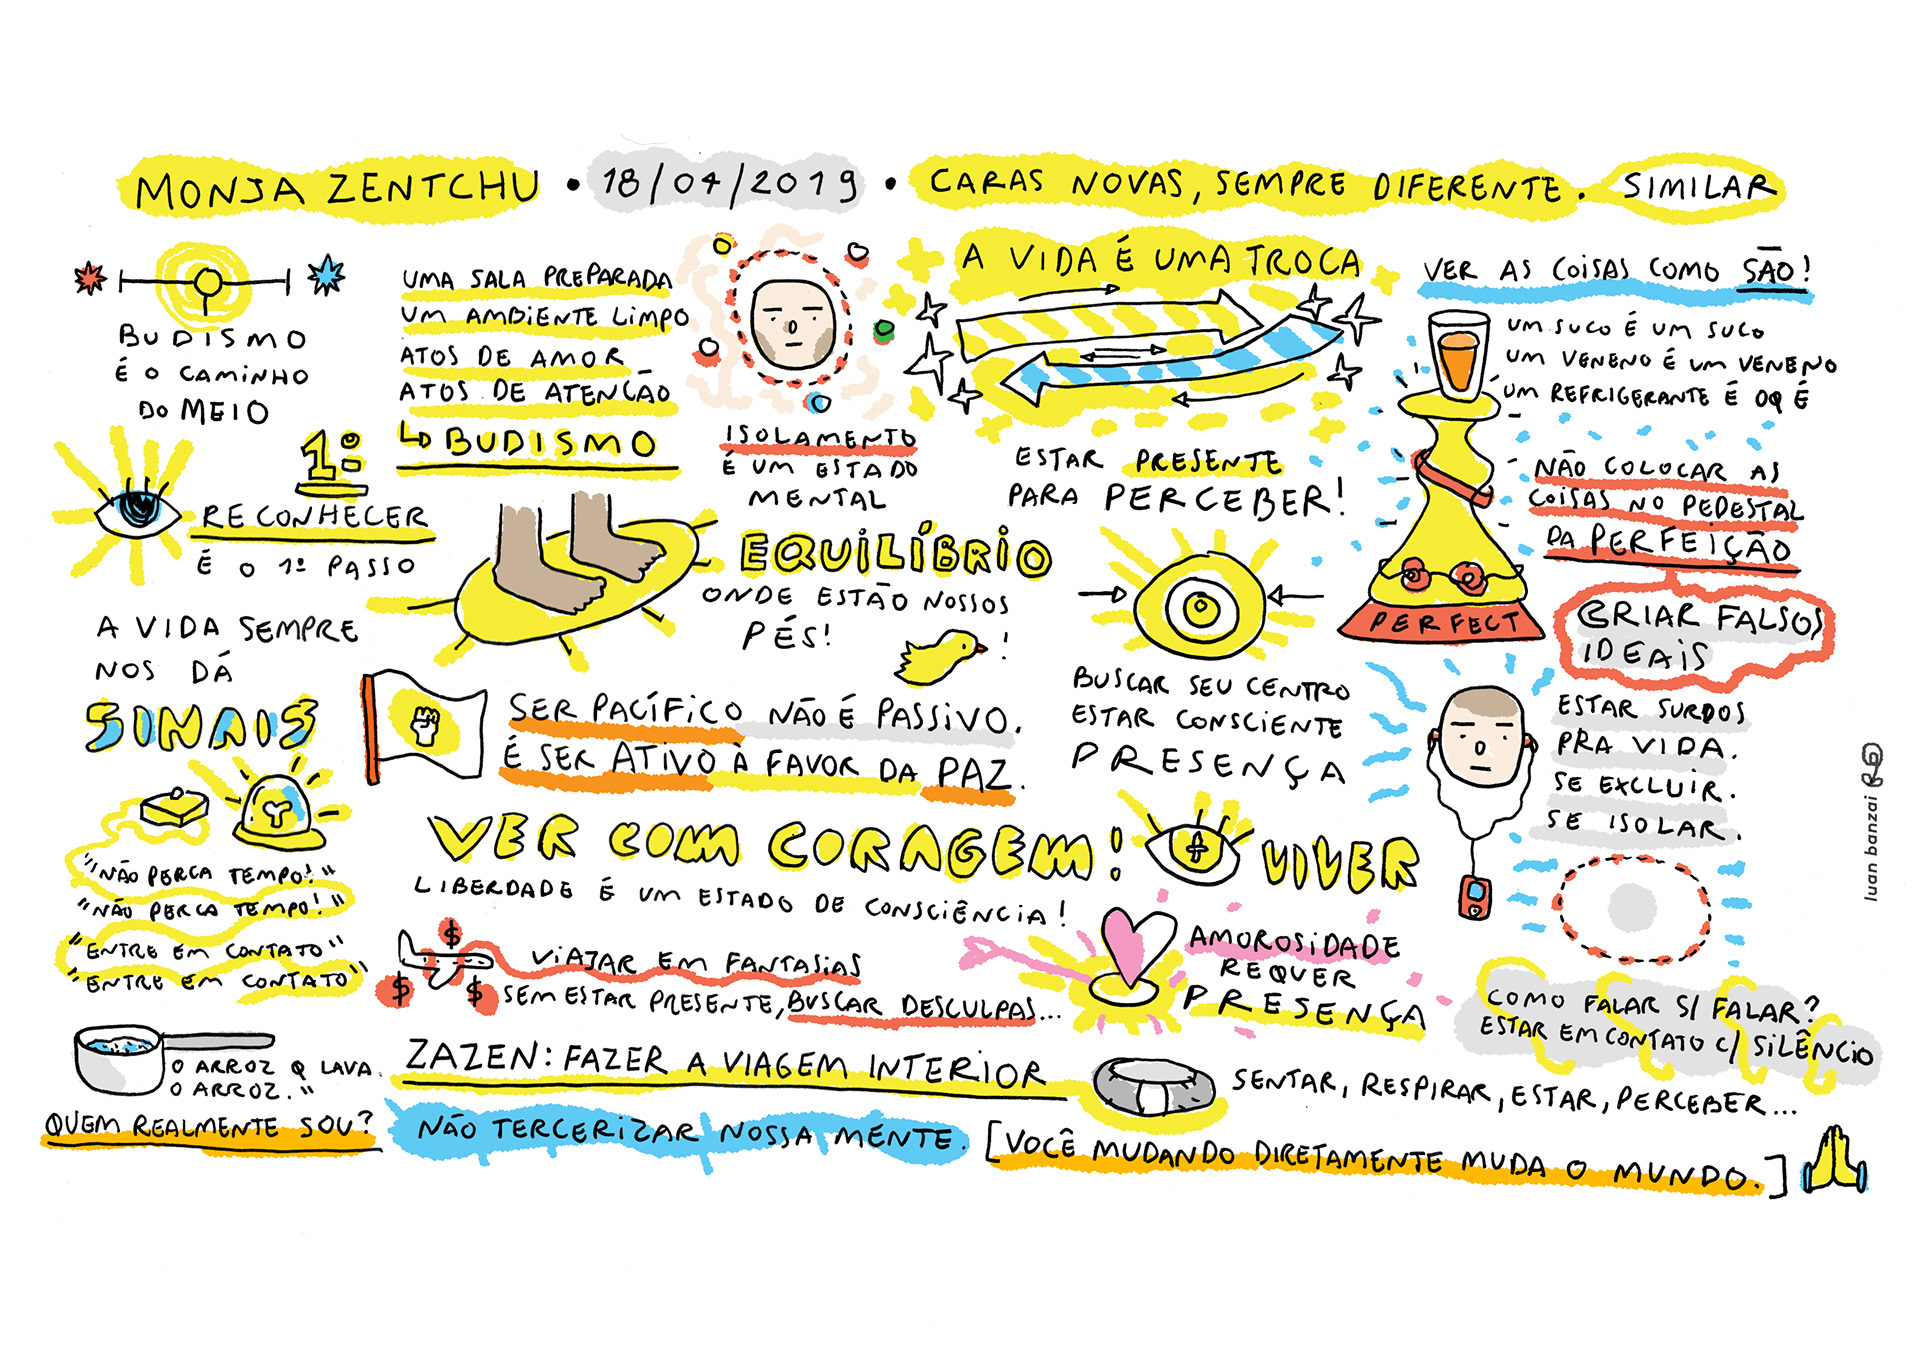 MONJA ZENTCHU • 18/04/2019 • CARAS NOVAS, SEMPRE DIFERENTE. SIMILAR
BUDISMO
É O CAMINHO
DO MEIO
UMA SALA PREPARADA
UM AMBIENTE LIMPO
ATOS DE AMOR
ATOS DE ATENÇÃO
BUDISMO
ISOLAMENTO
É UM ESTADO
MENTAL
A VIDA É UMA TROCA
ESTAR PRESENTE
PARA PERCEBER!
VER AS COISAS COMO SÃO!
UM SUCO É UM SUCO
UM VENENO É UM VENENO
UM REFRIGERANTE É OQ É
NÃO COLOCAR AS
COISAS NO PEDESTAL
DA PERFEIÇÃO
PERFECT
CRIAR FALSOS
IDEAIS
1º
RECONHECER
É O 1º PASSO
EQUILÍBRIO
ONDE ESTÃO NOSSOS
PÉS!
!
A VIDA SEMPRE
NOS DÁ
SINAIS
"NÃO PERCA TEMPO!"
"NÃO PERCA TEMPO!"
"ENTRE EM CONTATO"
"ENTRE EM CONTATO"
SER PACÍFICO NÃO É PASSIVO.
É SER ATIVO À FAVOR DA PAZ.
BUSCAR SEU CENTRO
ESTAR CONSCIENTE
PRESENÇA
ESTAR SURDOS
PRA VIDA.
SE EXCLUIR.
SE ISOLAR.
VER COM CORAGEM! VIVER
LIBERDADE É UM ESTADO DE CONSCIÊNCIA!
$
$ $
VIAJAR EM FANTASIAS
SEM ESTAR PRESENTE, BUSCAR DESCULPAS...
AMOROSIDADE
REQUER
PRESENÇA
COMO FALAR S/ FALAR?
ESTAR EM CONTATO C/ SILÊNCIO
O ARROZ Q LAVA
O ARROZ.."
QUEM REALMENTE SOU?
ZAZEN: FAZER A VIAGEM INTERIOR
SENTAR, RESPIRAR, ESTAR, PERCEBER...
NÃO TERCERIZAR NOSSA MENTE.
[VOCÊ MUDANDO DIRETAMENTE MUDA O MUNDO.]
luan banzai